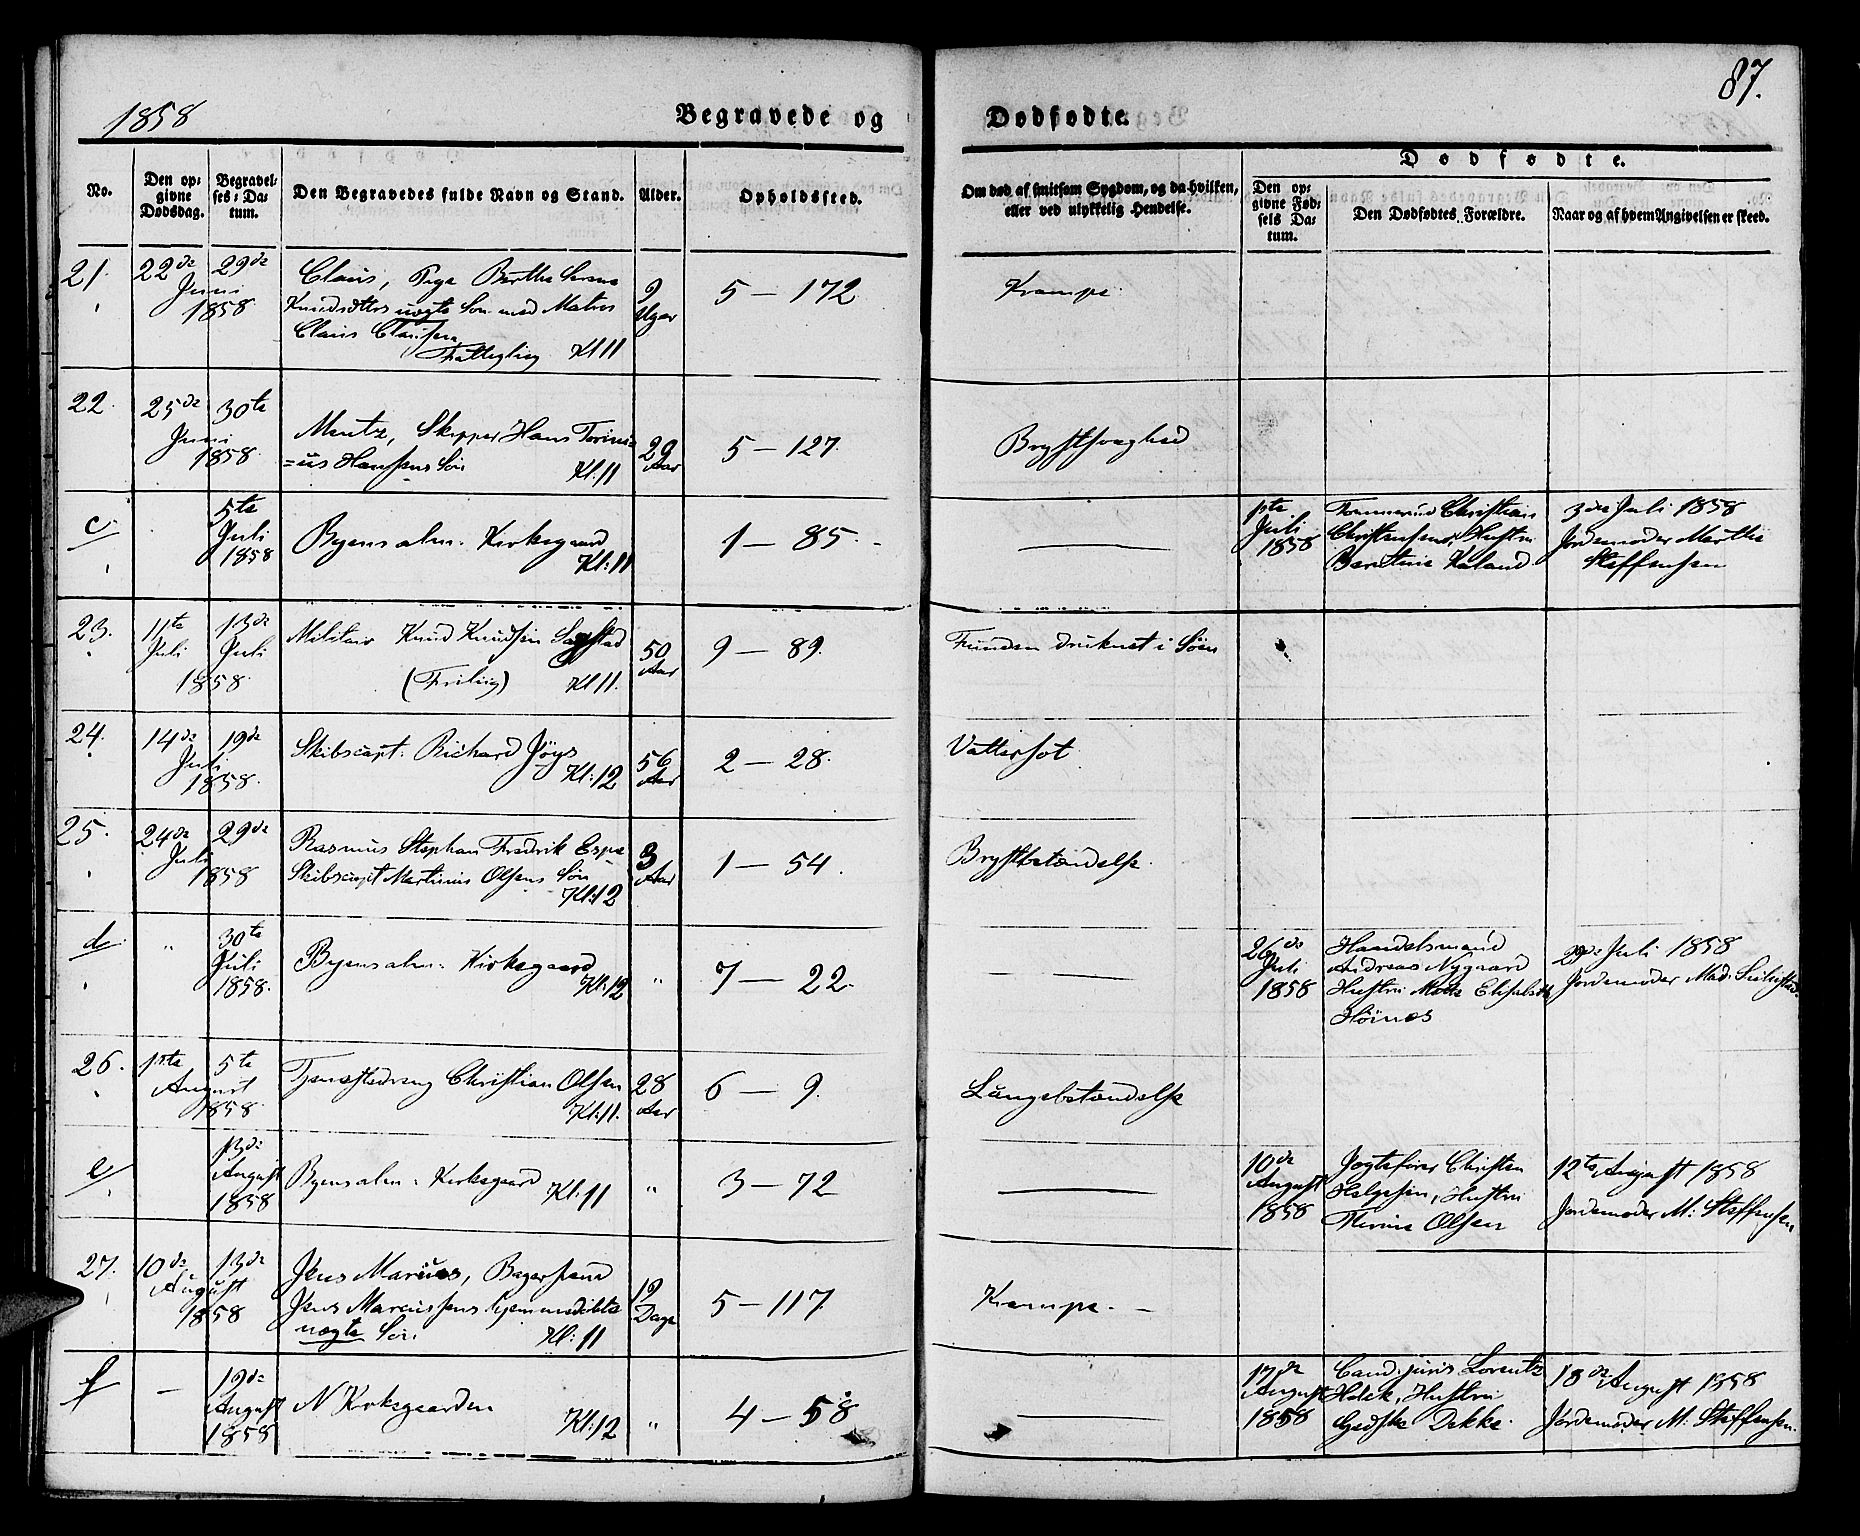 1858
Begravede og Dødfødte.
87.
No.
Den opgivne Dødsdag.
Begravelses-Datum.
Den Begravedes fulde Navn og Stand.
Alder.
Opholdssted.
Om død af smitsom Sygdom, og da hvilken, eller ved ulykkelig Hendelse.
Dødfødte.
Den opgivne Fødsels Datum.
Den Dødfødtes Forældre.
Naar og af hvem Angivelsen er skeed.
21. 22de Juni 29de 1858
Claus, Pige Berthe Serine
Knudsdtters uægte Søn med Matros
Claus Claussen
Fattiglig Kl 11
9 Uger
5 — 172
Krampe.
22. 25de Juni 30te 1858
Mentz, Skipper Hans Torini=
=us Hansens Søn Kl: 11
29 Aar
5 — 127.
Brystsvaghed
c. 5te Juli 1858
Byens alm. Kirkegaard
Kl: 11
1 — 85.
1ste Juli 1858
Christian
Christensens, Hustru
Berntine Kaland
3die Juli 1858
Jordemoder Marthe
Steffensen
23. 11te Juli 13de Juli 1858
Militair Knud Knudsen Sagstad
(Frilig) Kl 11.
50 Aar
9 — 89.
Funden druknet i Søen
24. 14de Juli 19de 1858.
Skibscapt: Richard Jøys
Kl: 12
56 Aar
2 — 28.
Vattersot.
25. 24de Juli 29de 1858
Rasmus Stephan Fredrik Espe
Skibscapt Martinus Olsens Søn
Kl: 12
3 Aar
1 — 54.
Brystbetændelse.
d. " 30te Juli 1858.
Byens alm. Kirkegaard
Kl: 12
"
7 — 22.
26de Juli 1858
Handelsmand
Andreas Nygaard
Hustru Mette Elisabeth
Høines
29de Juli 1858
Jordemoder Mad:
26. 1ste August 5te 1858.
Tjenestedreng Christian Olsen
Kl: 11.
28 Aar
6 — 9.
Lungebetændelse
e. 13de August 1858
Byens alm. Kirkegaard
Kl: 11
"
3 — 72
10de August 1858
Jagtefører Christen
Helgesen, Hustru
Olsen
12te August 1858
Jordemoder M: Steffensen
27. 10de August 13de 1858
Jens Marcus, Bagersvend
Jens Marcussens hjemmedøbte
uægte Søn Kl: 11
19 Dage
5 — 117.
Krampe. —
f. — 19de August 1858
N Kirkegaarden
Kl: 12
"
4 — 58
17de August 1858
Cand. juris Lorentz
Holck, Hustru
Gjedske Dekke.
18de August 1858
Jordemoder M: Steffensen